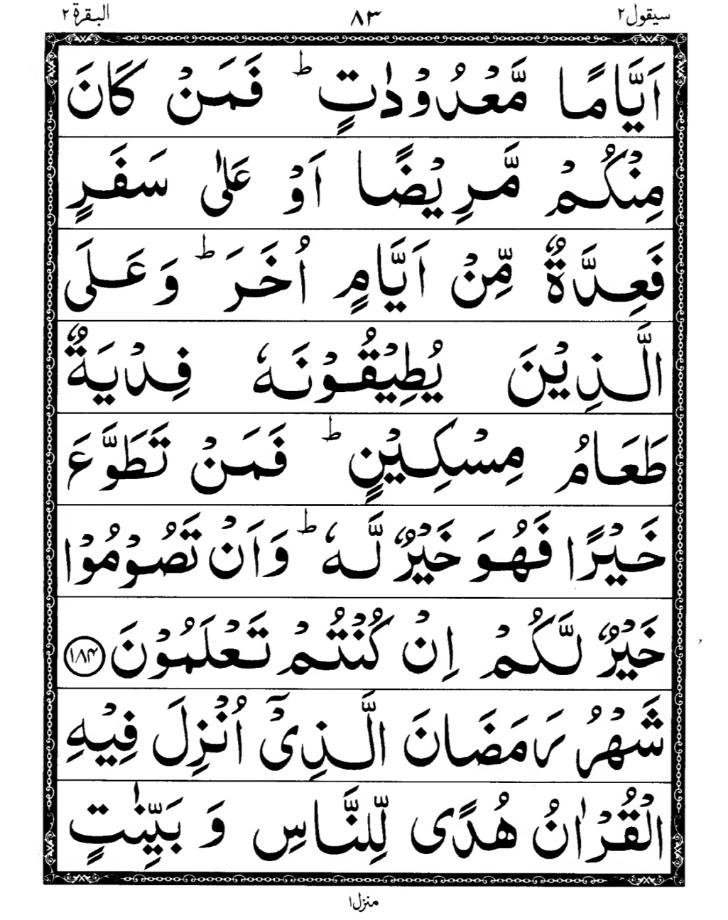 سيقول٢ ٨٣ البقرة٢
اَيَّامًا مَّعْدُوْدٰتٍ ؕ فَمَنْ كَانَ
مِنْكُمْ مَّرِيْضًا اَوْ عَلٰى سَفَرٍ
فَعِدَّةٌ مِّنْ اَيَّامٍ اُخَرَ ؕ وَعَلَى
الَّذِيْنَ يُطِيْقُوْنَهٗ فِدْيَةٌ
طَعَامُ مِسْكِيْنٍ ؕ فَمَنْ تَطَوَّعَ
خَيْرًا فَهُوَ خَيْرٌ لَّهٗ ؕ وَاَنْ تَصُوْمُوْا
خَيْرٌ لَّكُمْ اِنْ كُنْتُمْ تَعْلَمُوْنَ ۝۱۸۴
شَهْرُ رَمَضَانَ الَّذِيْٓ اُنْزِلَ فِيْهِ
الْقُرْاٰنُ هُدًى لِّلنَّاسِ وَ بَيِّنٰتٍ
منزل١